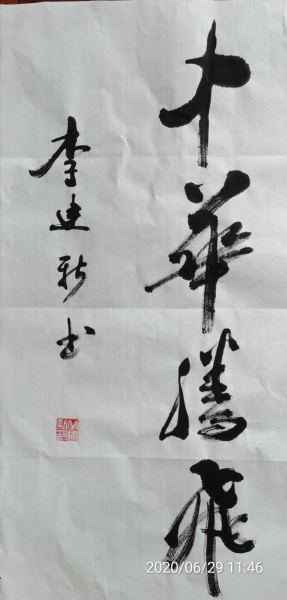 中华騰飛
李建新书
2020/06/29 11:46